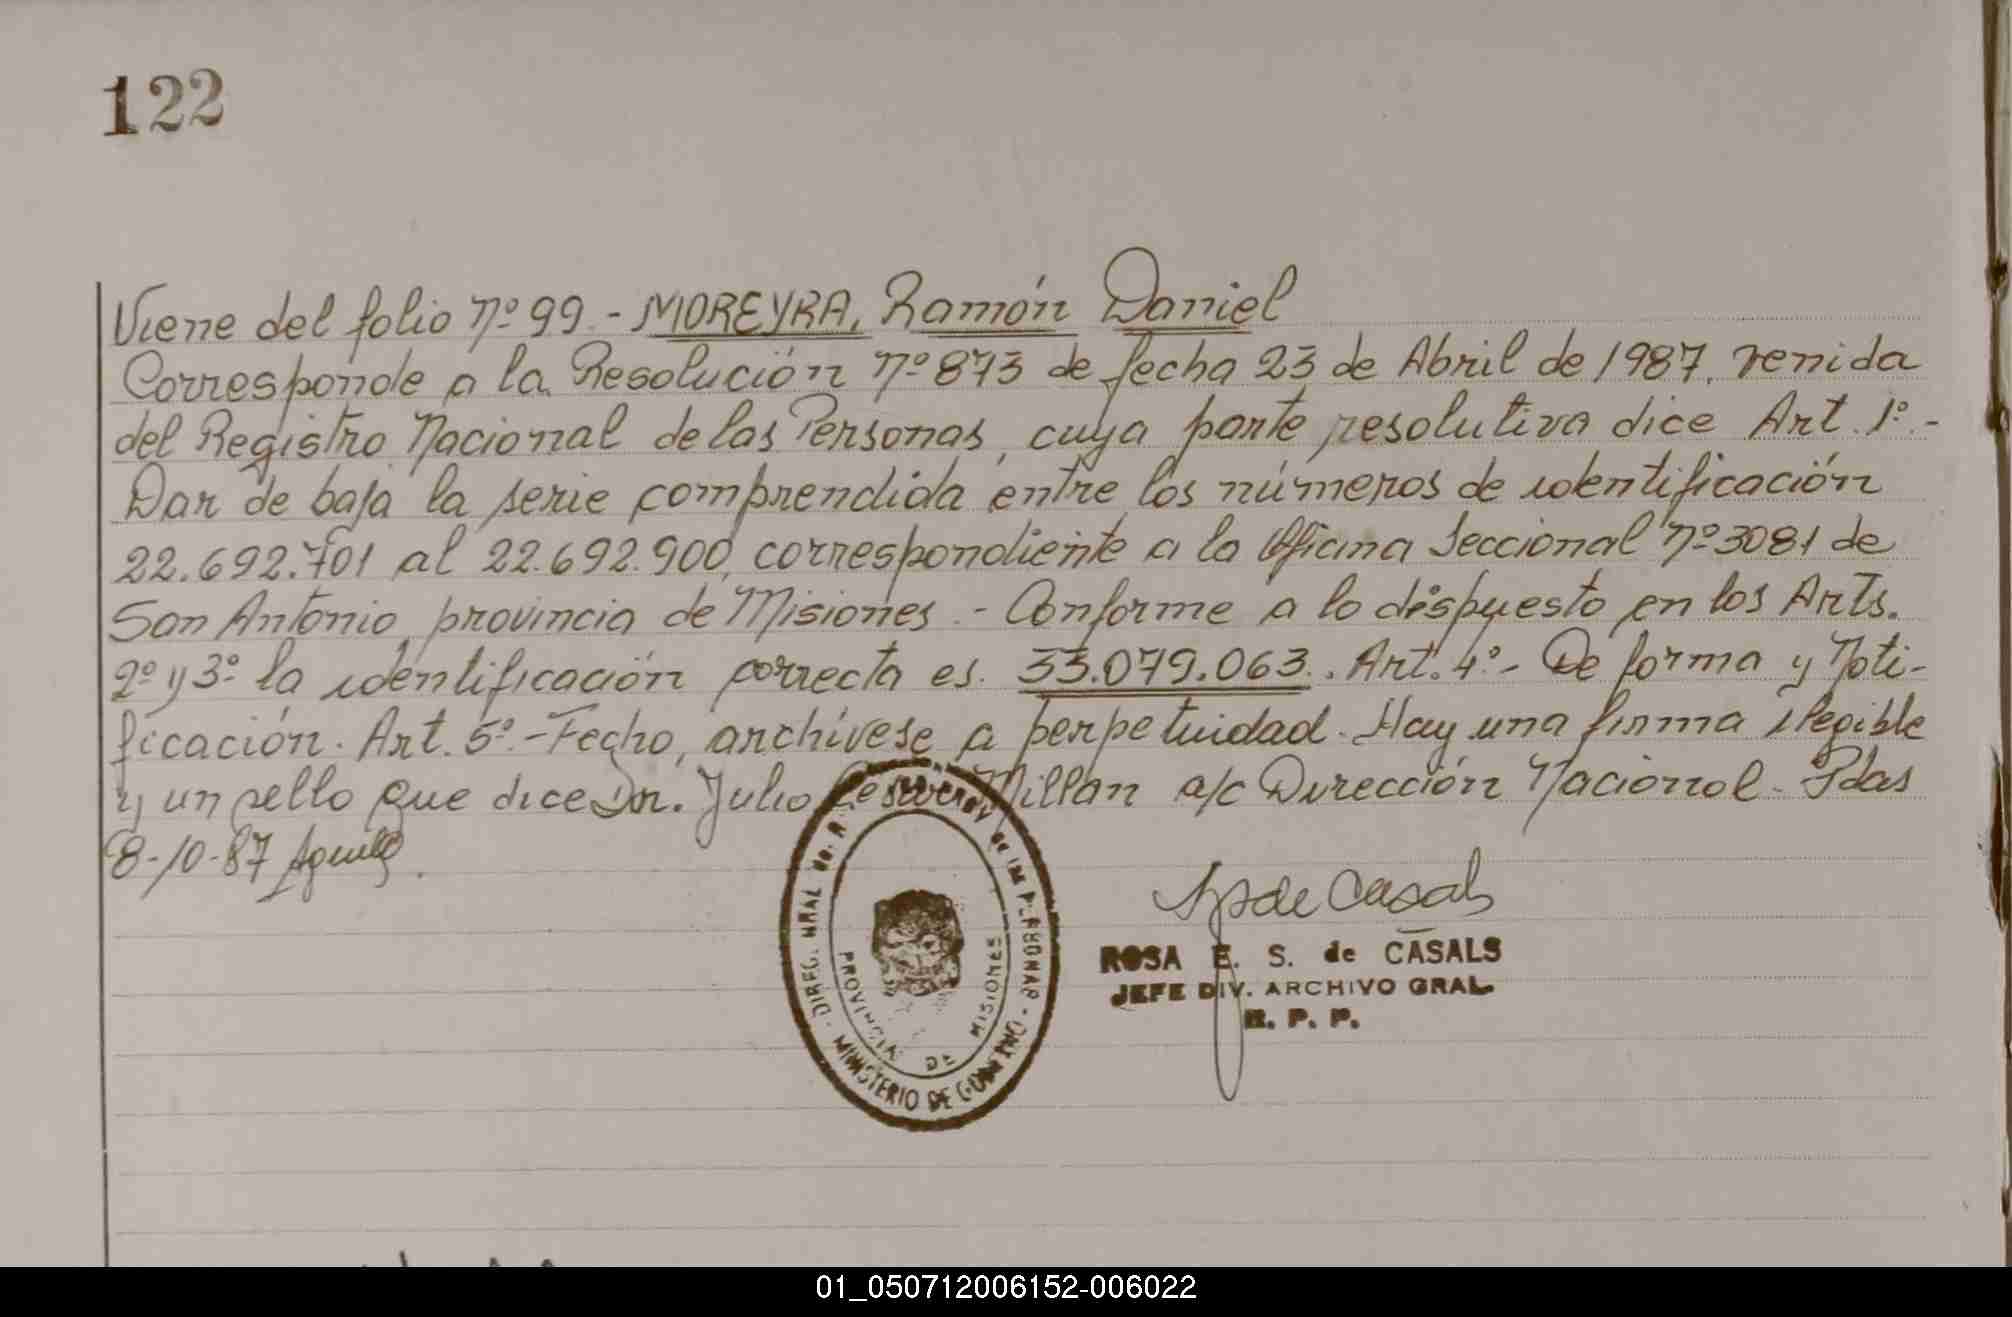 122
Viene del folio Nº 99.- MOREYRA, Ramón Daniel
Corresponde a la Resolución Nº 873 de fecha 23 de Abril de 1987, venida
del Registro Nacional de las Personas, cuya parte resolutiva dice Art. 1º.-
Dar de baja la serie comprendida entre los números de identificación
22.692.701 al 22.692.900, correspondiente a la Oficina Seccional Nº 3081 de
San Antonio, provincia de Misiones.- Conforme a lo dispuesto en los Arts.
2º y 3º la identificación correcta es. 33.079.063.. Art. 4º.- De forma y Noti-
ficación. Art. 5º.- Fecho, archívese a perpetuidad. Hay una firma ilegible
y un sello que dice Dr. Julio Millan a/c Dirección Nacional.- Pdas
8-10-87
DIREC. GRAL de las PERSONAS - MINISTERIO DE GOBIERNO -
PROVINCIA DE MISIONES
de Casals
ROSA E. S. de CASALS
JEFE DIV. ARCHIVO GRAL.
R. P. P.
01_050712006152-006022